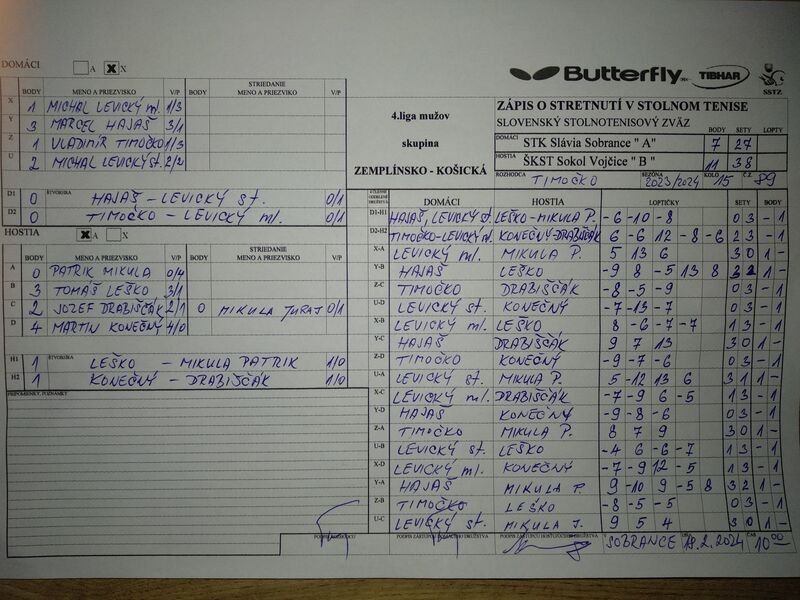 DOMÁCI A X
Butterfly TIBHAR SSTZ
STRIEDANIE
BODY MENO A PRIEZVISKO V/P BODY MENO A PRIEZVISKO V/P
X 1 MICHAL LEVICKÝ ml. 1/3
Y 3 MARCEL HAJAŠ 3/1
Z 1 VLADIMÍR TIMOČKO 1/3
U 2 MICHAL LEVICKÝ st. 2/2
4.liga mužov
skupina
ZEMPLÍNSKO - KOŠICKÁ
ZÁPIS O STRETNUTÍ V STOLNOM TENISE
SLOVENSKÝ STOLNOTENISOVÝ ZVÄZ
DOMÁCI BODY SETY LOPTY
STK Slávia Sobrance " A" 7 27
HOSTIA
ŠKST Sokol Vojčice " B " 11 38
ROZHODCA TIMOČKO SEZÓNA 2023/2024 KOLO 15 Č.Z. 89
D1 0 ŠTVORHRA HAJAŠ - LEVICKÝ st. 0/1
D2 0 TIMOČKO - LEVICKÝ ml. 0/1
HOSTIA A X
STRIEDANIE
BODY MENO A PRIEZVISKO V/P BODY MENO A PRIEZVISKO V/P
A 0 PATRIK MIKULA 0/4
B 3 TOMÁŠ LEŠKO 3/1
C 2 JOZEF DRABIŠČÁK 2/1 0 MIKULA JURAJ 0/1
D 4 MARTIN KONEČNÝ 4/0
H1 1 ŠTVORHRA LEŠKO - MIKULA PATRIK 1/0
H2 1 KONEČNÝ - DRABIŠČÁK 1/0
PRIPOMIENKY, POZNÁMKY
DOMÁCI HOSTIA LOPTIČKY SETY BODY
D1-H1 HAJAŠ, LEVICKÝ st. LEŠKO-MIKULA P. -6 -10 -8 0 3 - 1
D2-H2 TIMOČKO-LEVICKÝ ml. KONEČNÝ-DRABIŠČÁK 6 -6 12 -8 -6 2 3 - 1
X-A LEVICKÝ ml. MIKULA P. 5 13 6 3 0 1 -
Y-B HAJAŠ LEŠKO -9 8 -5 13 8 3 2 1 -
Z-C TIMOČKO DRABIŠČÁK -8 -5 -9 0 3 - 1
U-D LEVICKÝ st. KONEČNÝ -7 -13 -7 0 3 - 1
X-B LEVICKÝ ml. LEŠKO 8 -6 -7 -7 1 3 - 1
Y-C HAJAŠ DRABIŠČÁK 9 7 13 3 0 1 -
Z-D TIMOČKO KONEČNÝ -9 -7 -6 0 3 - 1
U-A LEVICKÝ st. MIKULA P. 5 -12 13 6 3 1 1 -
X-C LEVICKÝ ml. DRABIŠČÁK -7 -9 6 -5 1 3 - 1
Y-D HAJAŠ KONEČNÝ -9 -8 -6 0 3 - 1
Z-A TIMOČKO MIKULA P. 8 7 9 3 0 1 -
U-B LEVICKÝ st. LEŠKO -4 6 -6 -7 1 3 - 1
X-D LEVICKÝ ml. KONEČNÝ -7 -9 12 -5 1 3 - 1
Y-A HAJAŠ MIKULA P. 9 -10 9 -5 8 3 2 1 -
Z-B TIMOČKO LEŠKO -8 -5 -5 0 3 - 1
U-C LEVICKÝ st. MIKULA J. 9 5 4 3 0 1 -
PODPIS ROZHODCU PODPIS ZÁSTUPCU DOMÁCEHO DRUŽSTVA PODPIS ZÁSTUPCU HOSŤUJÚCEHO DRUŽSTVA SOBRANCE 18.2.2024 ČAS 10:00